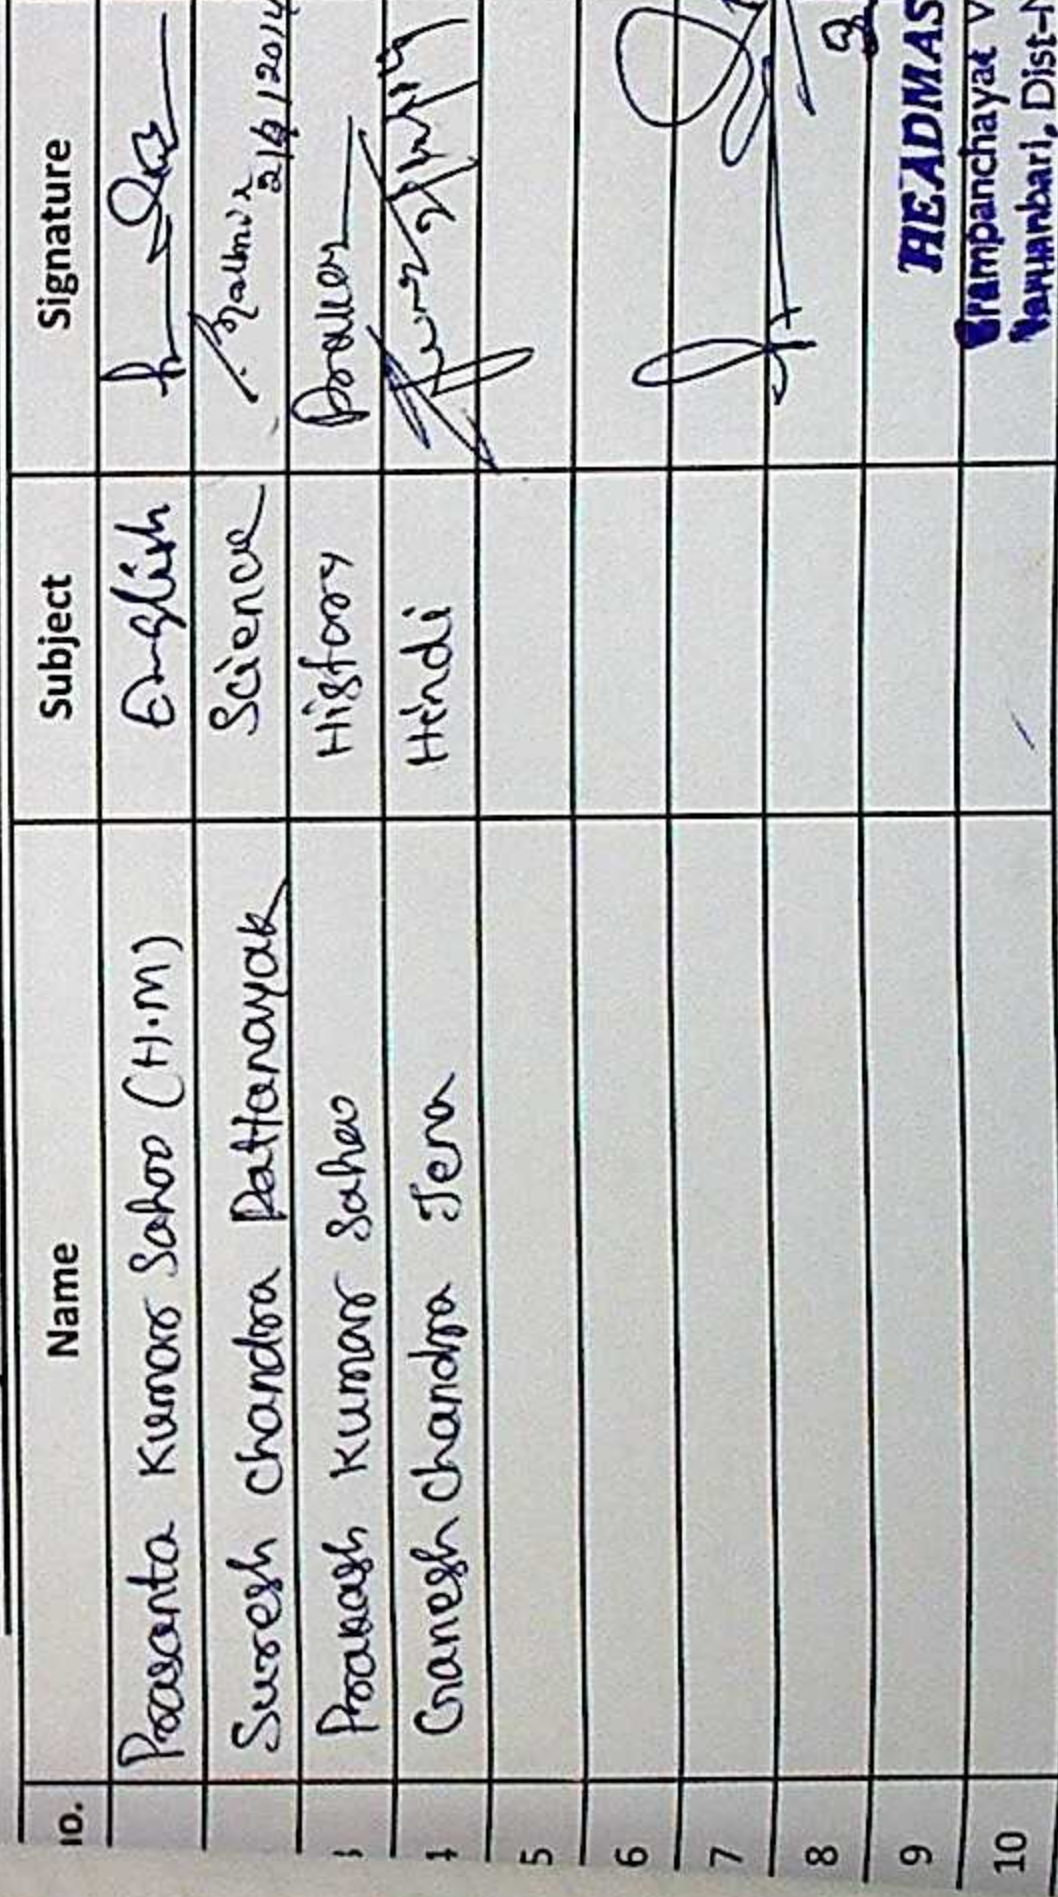 Name Subject Signature
Prasanta Kumar Sahoo (H.M) English
Suresh Chandra Pattanayak Science 2/9/2014
Prakash Kumar Sahoo History
Ganesh Chandra Jena Hindi
5
6
7
8
9
10
HEADMAS
Grampanchayat V
Dist-N